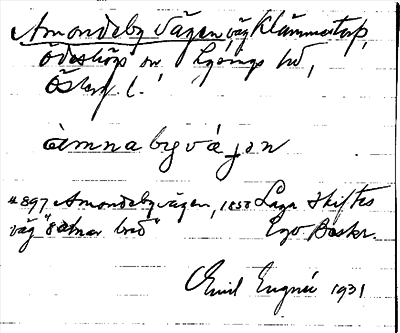 Amondebyvägen, väg Klämmestorp,
Ödeshögs sn Lysings hd,
Österg. l.
àmnabyvä
#897 Amondebyvägen, 1850 Laga Skiftes
väg "8 alnar bred" Ego Beskr.
Emil 1931